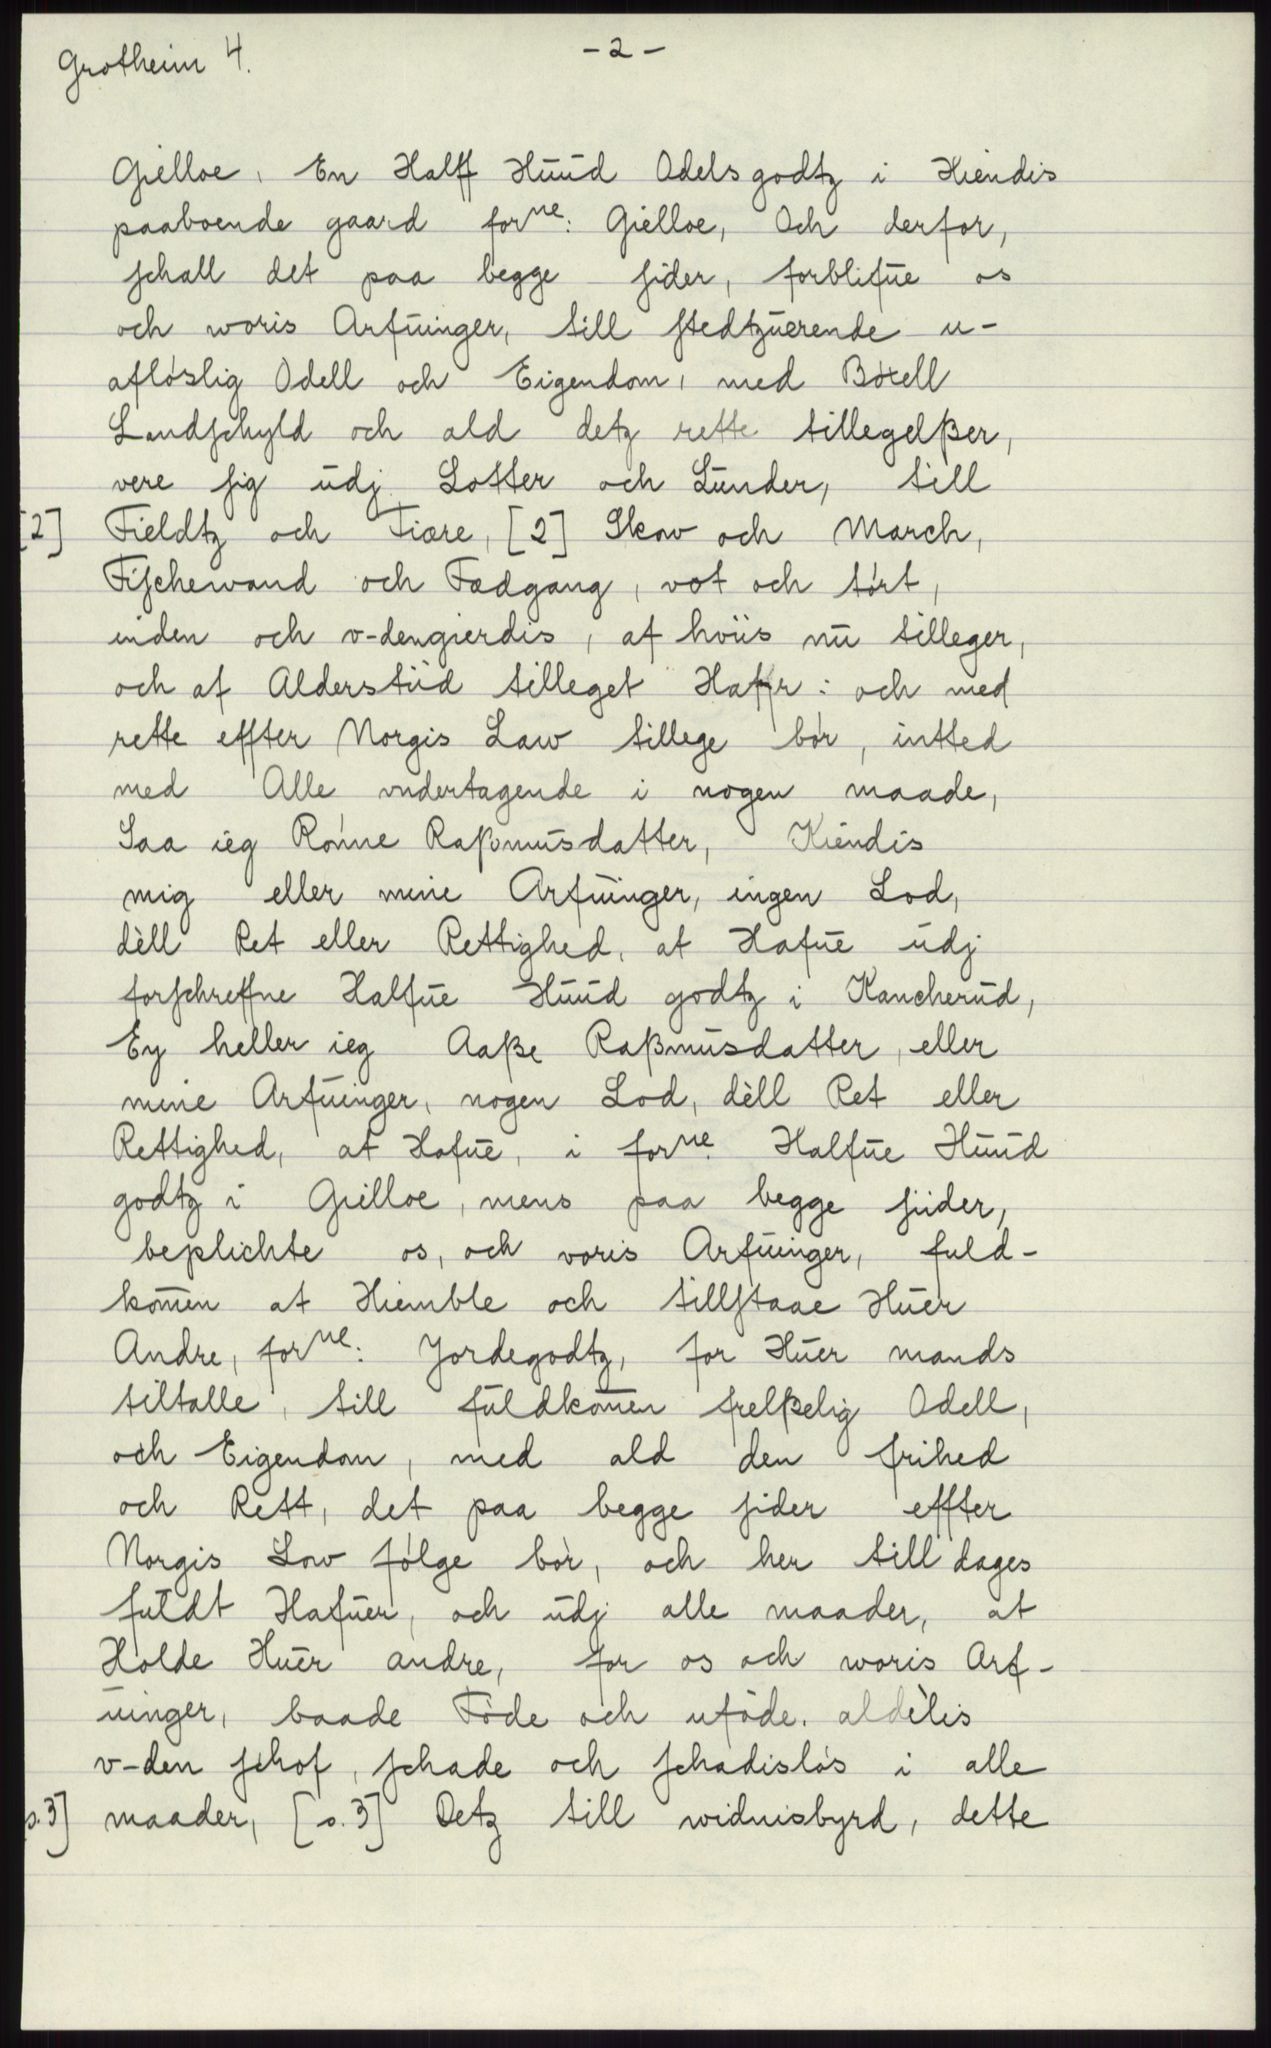 Grotheim 4.
- 2 -
Gielloe, En Halff Huud Odelsgodtz i Hiendis
paaboende gaard forne: Gielloe, Och derfor,
schall det paa begge sider, forblifue os
och woris Arfuinger, till stedtzuerende u-
afløslig Odell och Eigendom, med Bøxell
Landschyld och ald detz rette tillegelßer,
vere sig udj Lotter och Lunder, till
[2] Fieldtz och Fiære, [2] Skow och March,
Fischewand och Fædgang, vot och tørt,
inden och v-dengierdis, af hviis nu tilleger,
och af Alderstiid tilleget Haffr: och med
rette effter Norgis Law tillege bør, intted
med Alle vndertagende i nogen maade,
Saa ieg Rønne Raßmusdatter, Kiendis
mig eller mine Arfuinger, ingen Lod,
dèll Ret eller Rettighed, at Hafue udj
forschreffne Halfue Huud godtz i Kancherud,
Ey heller ieg Aaße Raßmusdatter, eller
mine Arfuinger, nogen Lod, dèll Ret eller
Rettighed, at Hafue, i forne: Halfue Huud
godtz i Gielloe, mens paa begge siider,
beplichte os, och voris Arfuinger, fuld-
kommen at Hiemble och tillstaae Huer
Andre, forne: Jordegodtz, for Huer mands
tiltalle, till fuldkommen frelßelig Odell,
och Eigendom, med ald den frihed
och Rett, det paa begge sider effter
Norgis Low følge bør, och her till dages
fuldt Hafuer, och udj alle maader, at
Holde Huer andre, for os och woris Arf-
uinger, baade Føde och uføde. aldèlis
v-den schof, schade och schadisløs i alle
s.3] maader, [s.3] Detz till widnisbyrd, dette